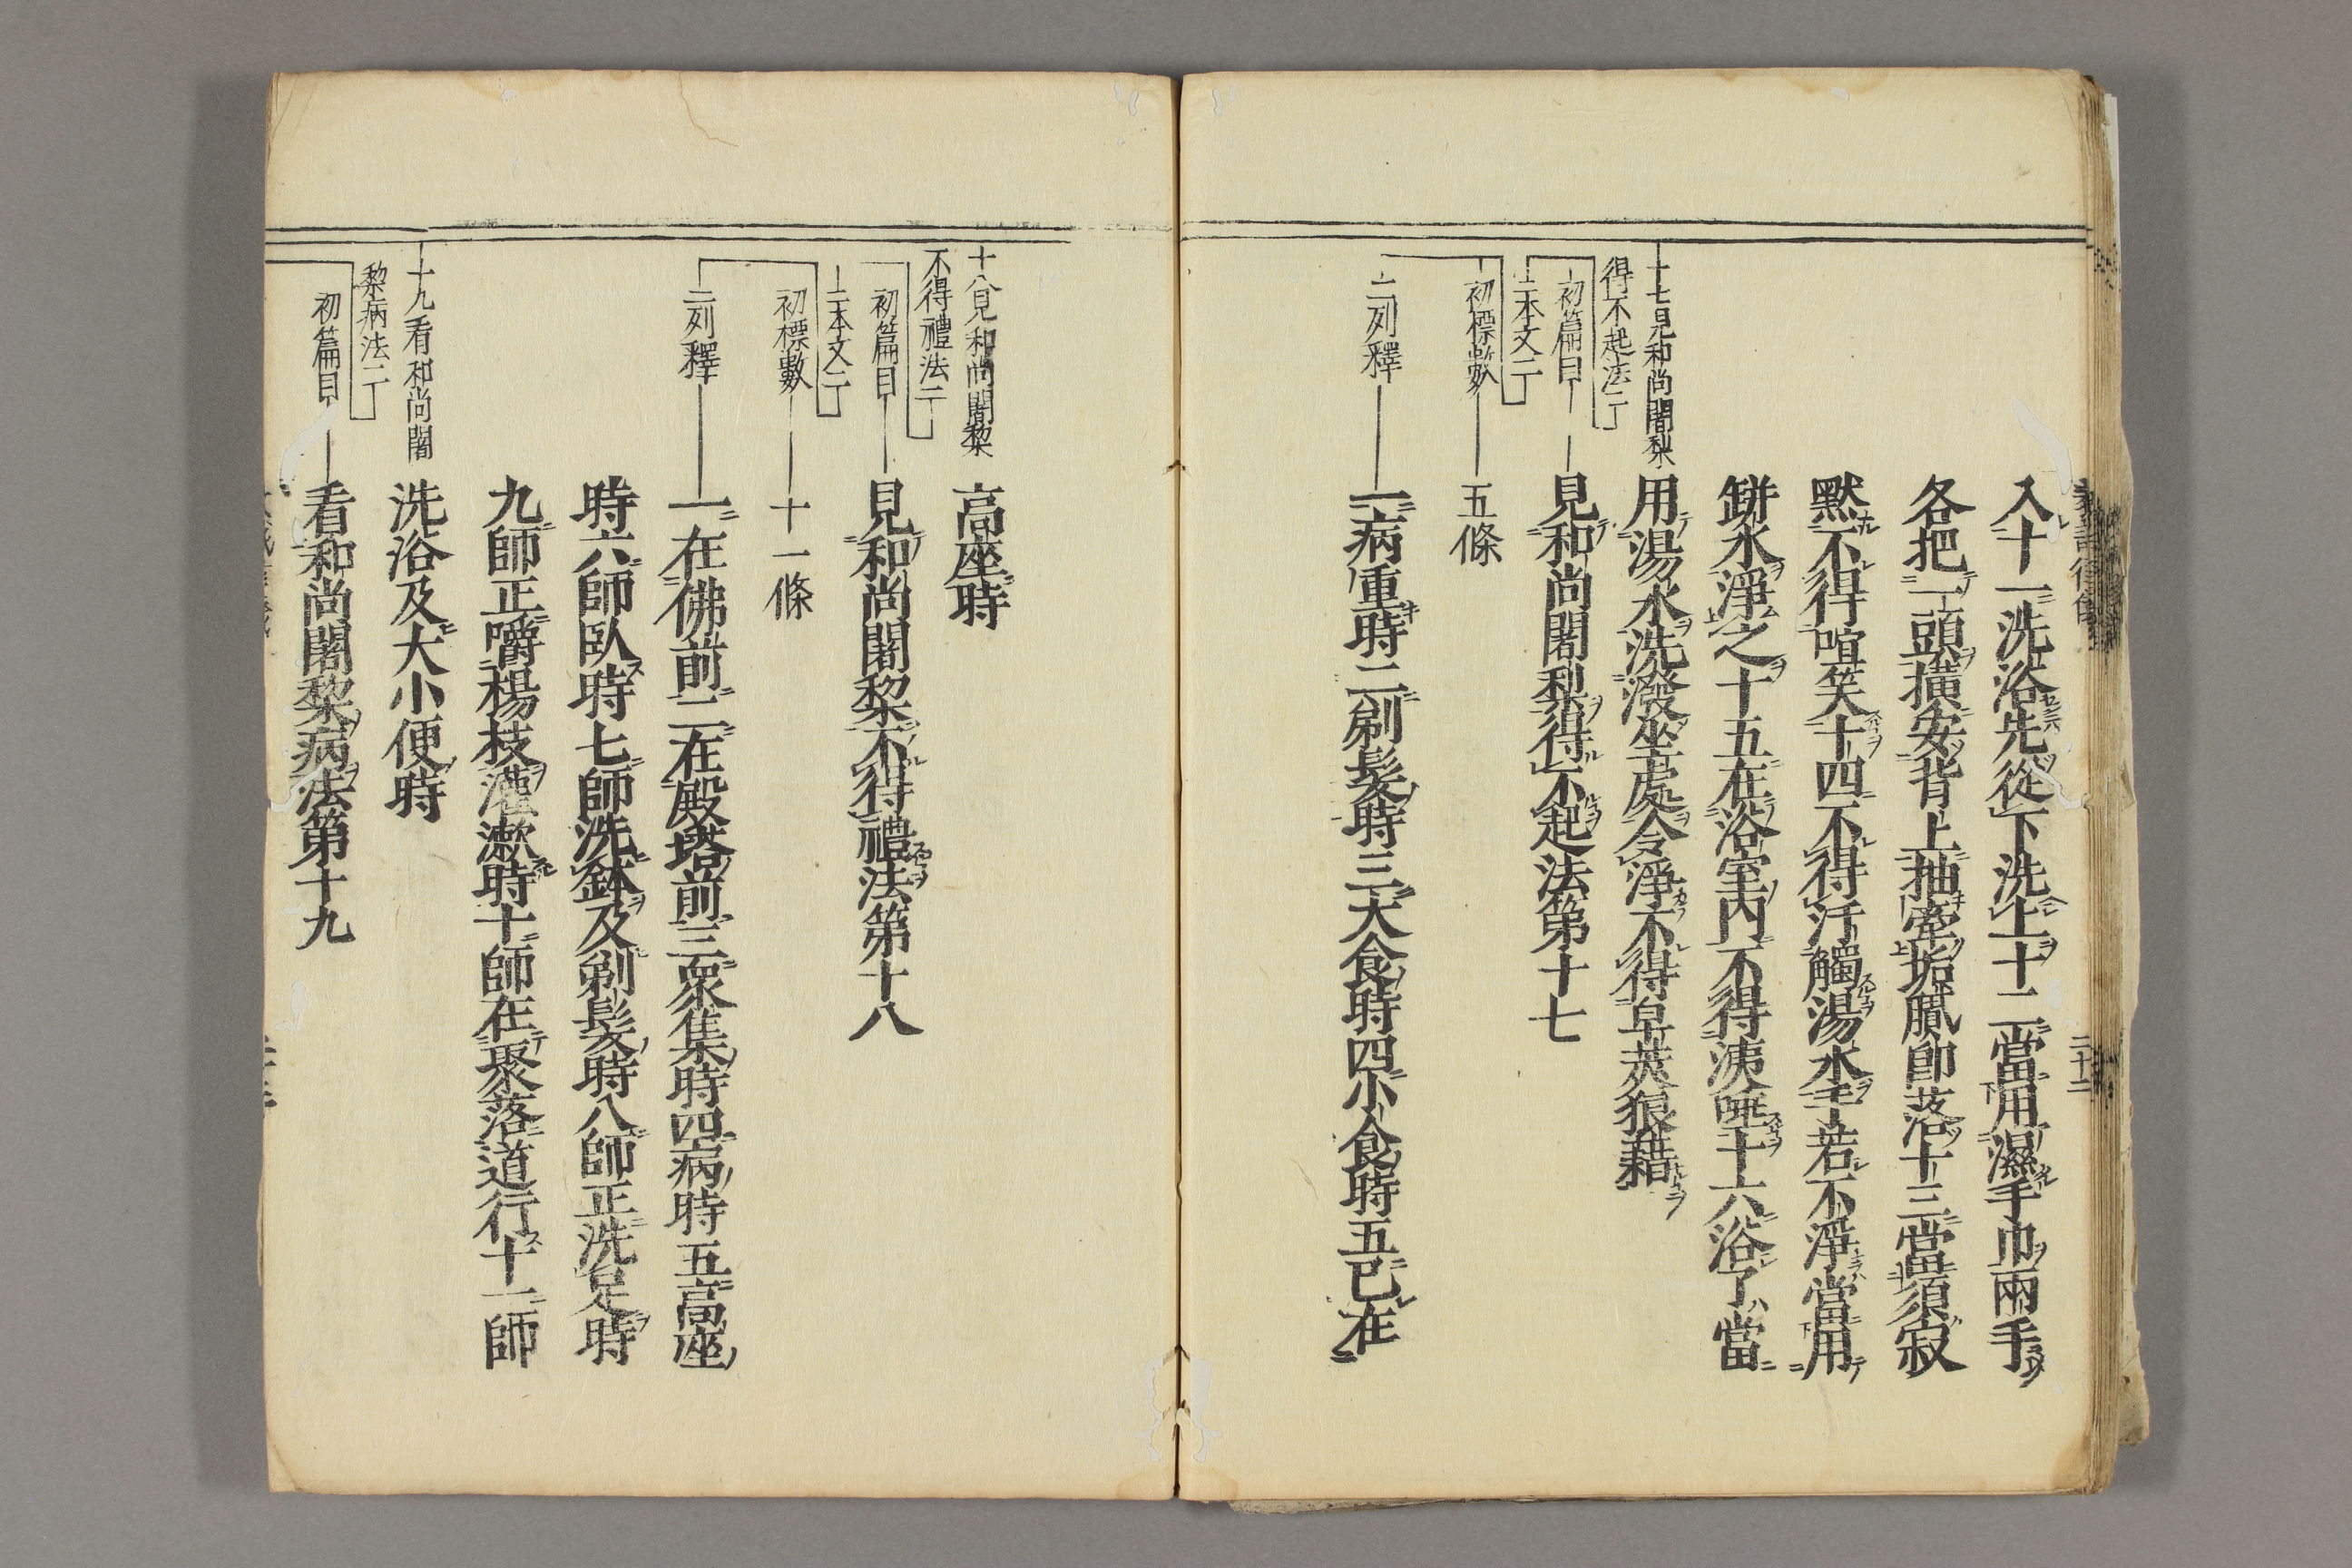 入十一洗浴先從下洗上十二當用濕手巾兩手
各把一頭撗安背上抽牽垢膩卽落十三當須寂
默不得喧笑十四不得汙觸湯水手若不淨當用
缾水淨之十五在浴室內不得洟唾十六浴了當
十七見和尚闍梨
得不起法二
用湯水洗潑坐處令淨不得皁莢狼藉
初篇目
見和尚闍梨得不起法第十七
二本文二
初標數
五條
二列釋
一病重時二剃髮時三大食時四小食時五已在
十八見和尚闍黎
不得禮法二
高座時
初篇目
見和尚闍黎不得禮法第十八
二本文二
初標數
十一條
二列釋
一在佛前二在殿塔前三衆集時四病時五高座
時六師臥時七師洗鉢及剃髮時八師正洗足時
九師正嚼楊枝灌漱時十師在聚落道行十一師
十九看和尚闍
黎病法二
洗浴及大小便時
初篇目
看和尚闍黎病法第十九